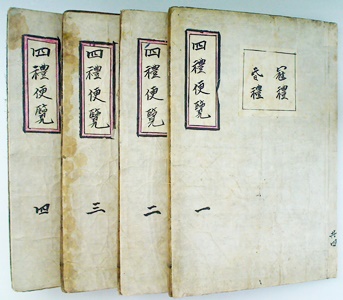 四禮便覽
四
四禮便覽
三
四禮便覽
二
四禮便覽
一
冠禮
昏禮
共四